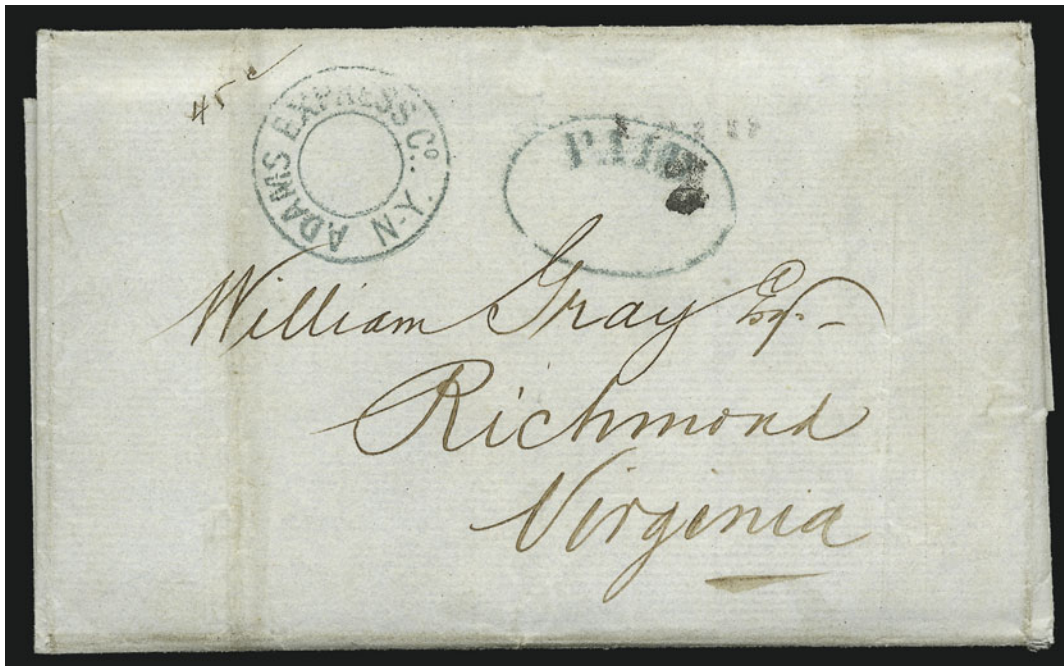 45
ADAMS EXPRESS Co. N-Y.
PAID
William Gray Esq.
Richmond
Virginia